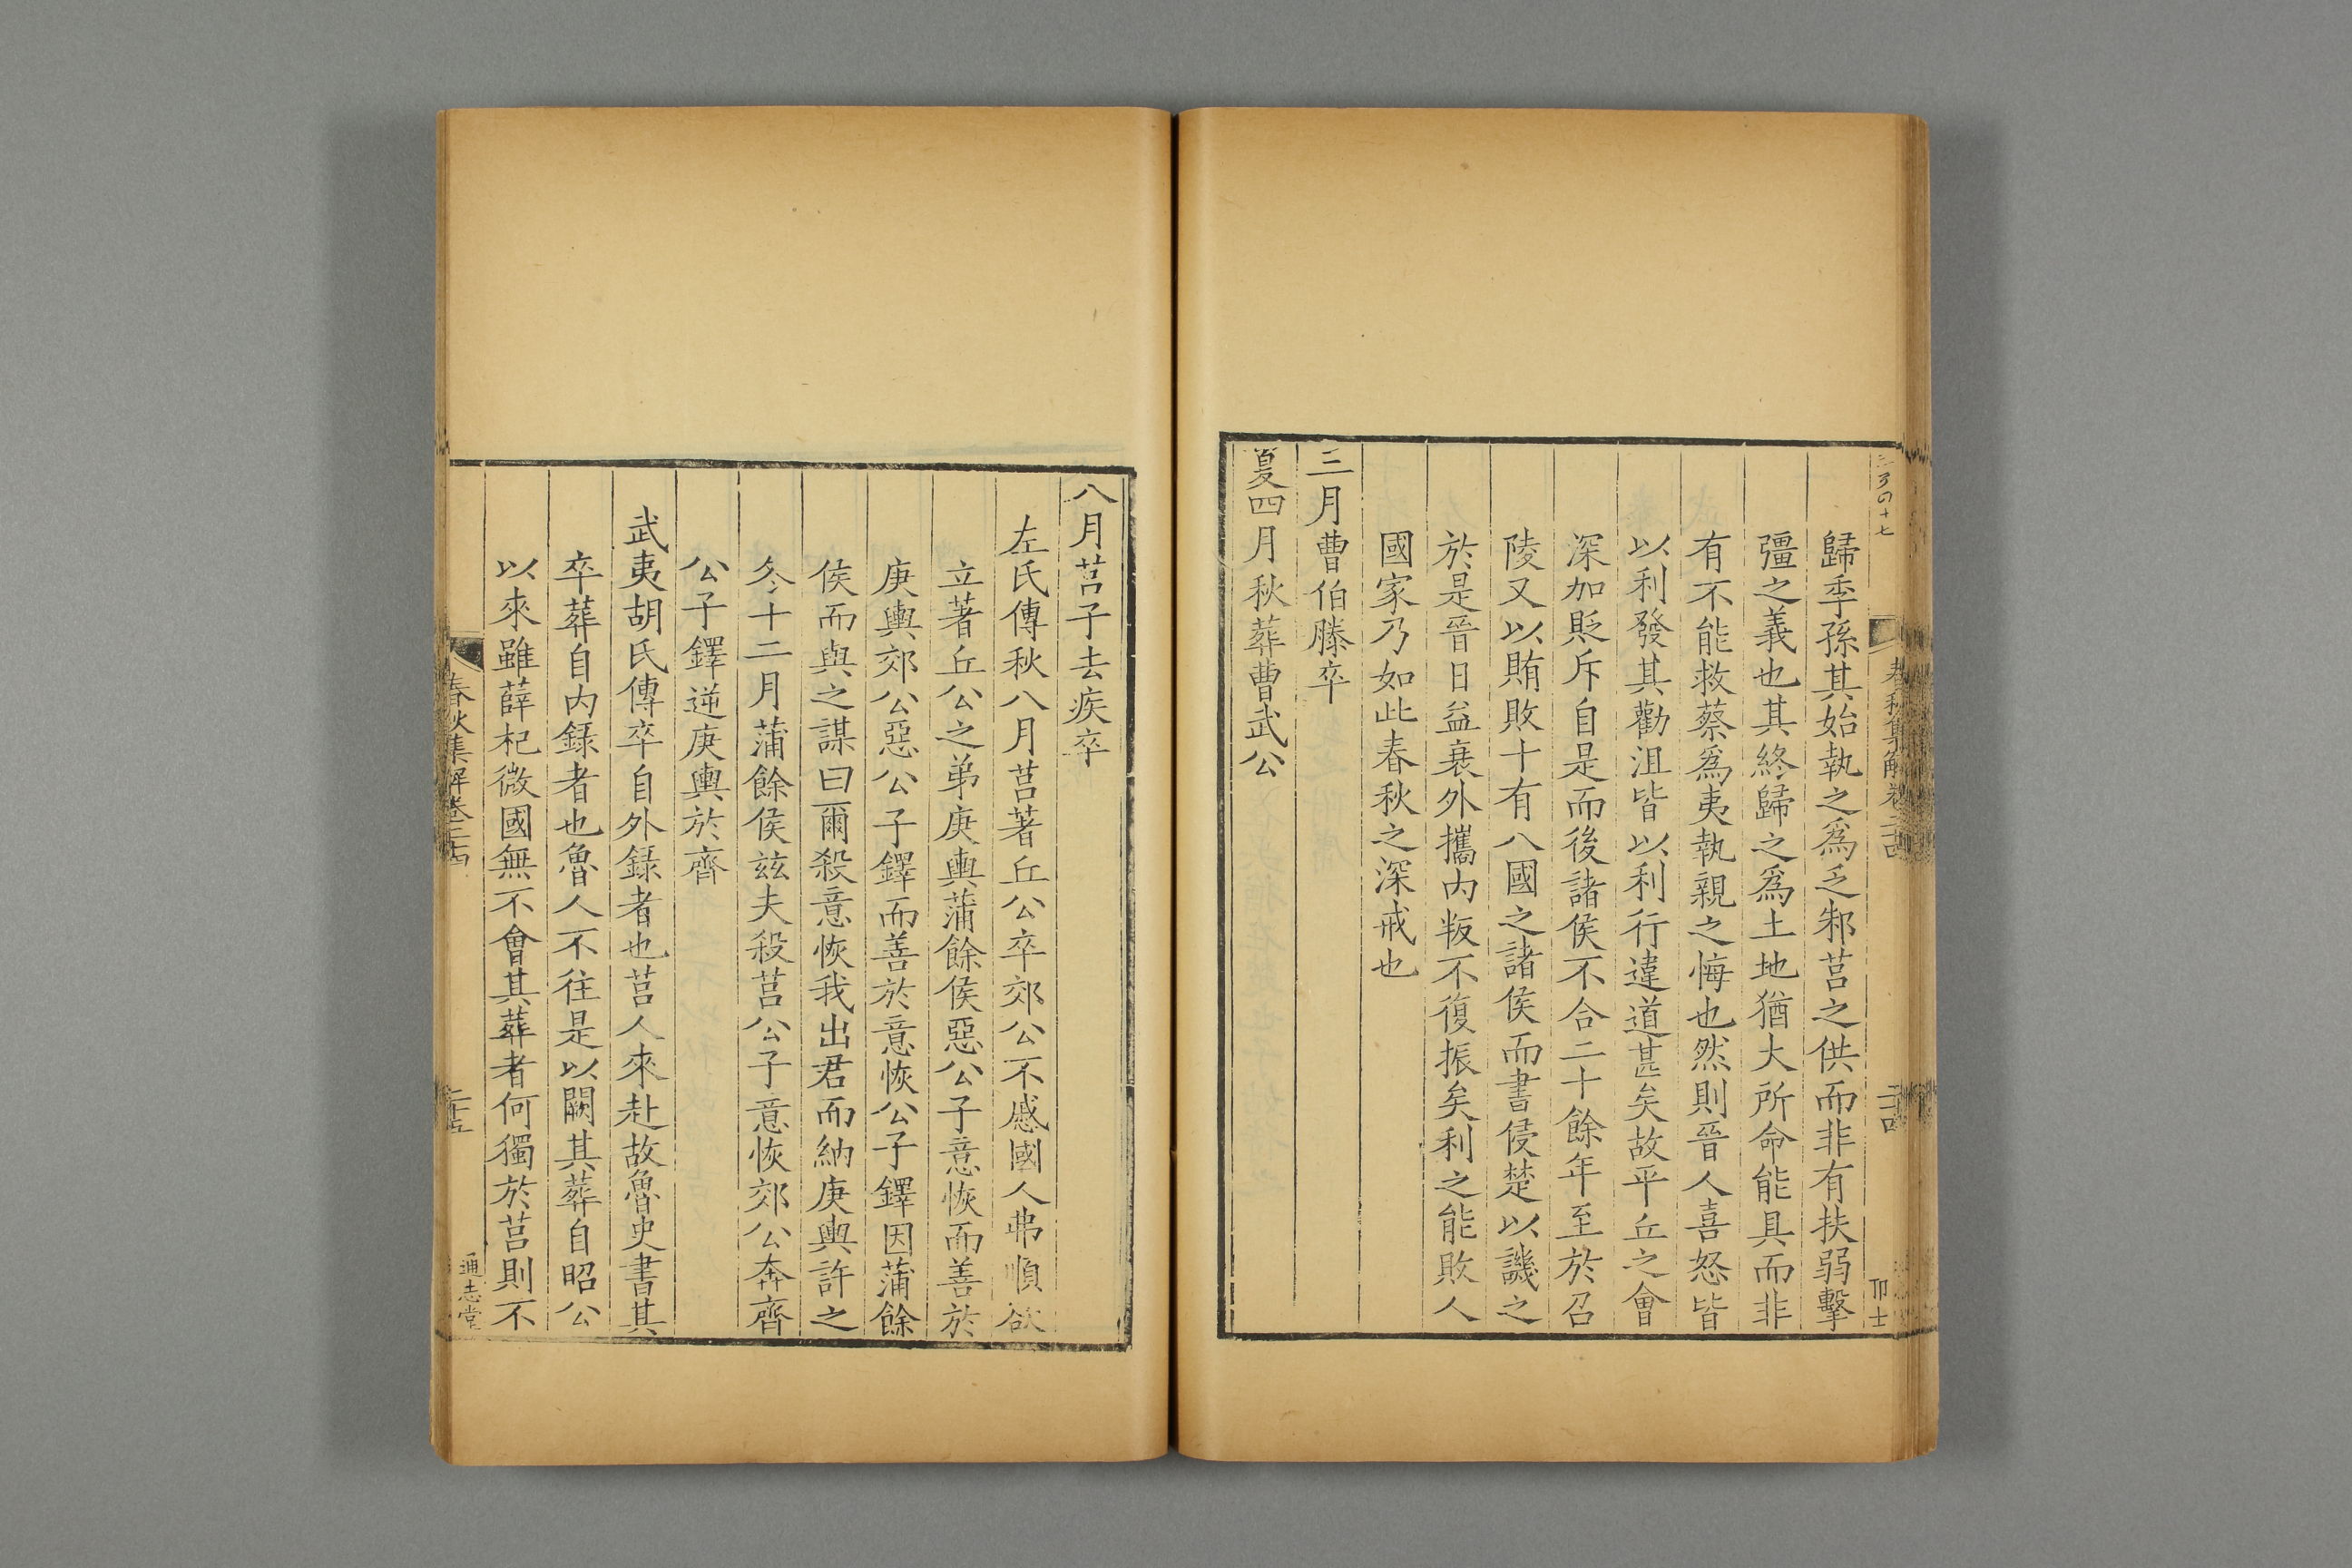 歸季孫其始執之爲乏邾莒之供而非有扶弱擊
彊之義也其終歸之爲土地猶大所命能具而非
有不能救蔡爲夷執親之悔也然則晉人喜怒皆
以利發其勸沮皆以利行違道甚矣故平丘之會
深加貶斥自是而後諸侯不合二十餘年至於召
陵又以賄敗十有八國之諸侯而書侵楚以譏之
於是晉日益衰外攜内叛不復振矣利之能敗人
國家乃如此春秋之深戒也
三月曹伯滕卒
夏四月秋葬曹武公
八月莒子去疾卒
左氏傳秋八月莒著丘公卒郊公不慼國人弗順欲
立著丘公之弟庚輿蒲餘侯惡公子意恢而善於
庚輿郊公惡公子鐸而善於意恢公子鐸因蒲餘
侯而與之謀曰爾殺意恢我出君而納庚輿許之
冬十二月蒲餘侯兹夫殺莒公子意恢郊公奔齊
公子鐸逆庚輿於齊
武夷胡氏傳卒自外録者也莒人來赴故魯史書其
卒葬自内録者也魯人不往是以闕其葬自昭公
以來雖薛杞微國無不會其葬者何獨於莒則不
春秋集解卷二十四
二十五
通志堂